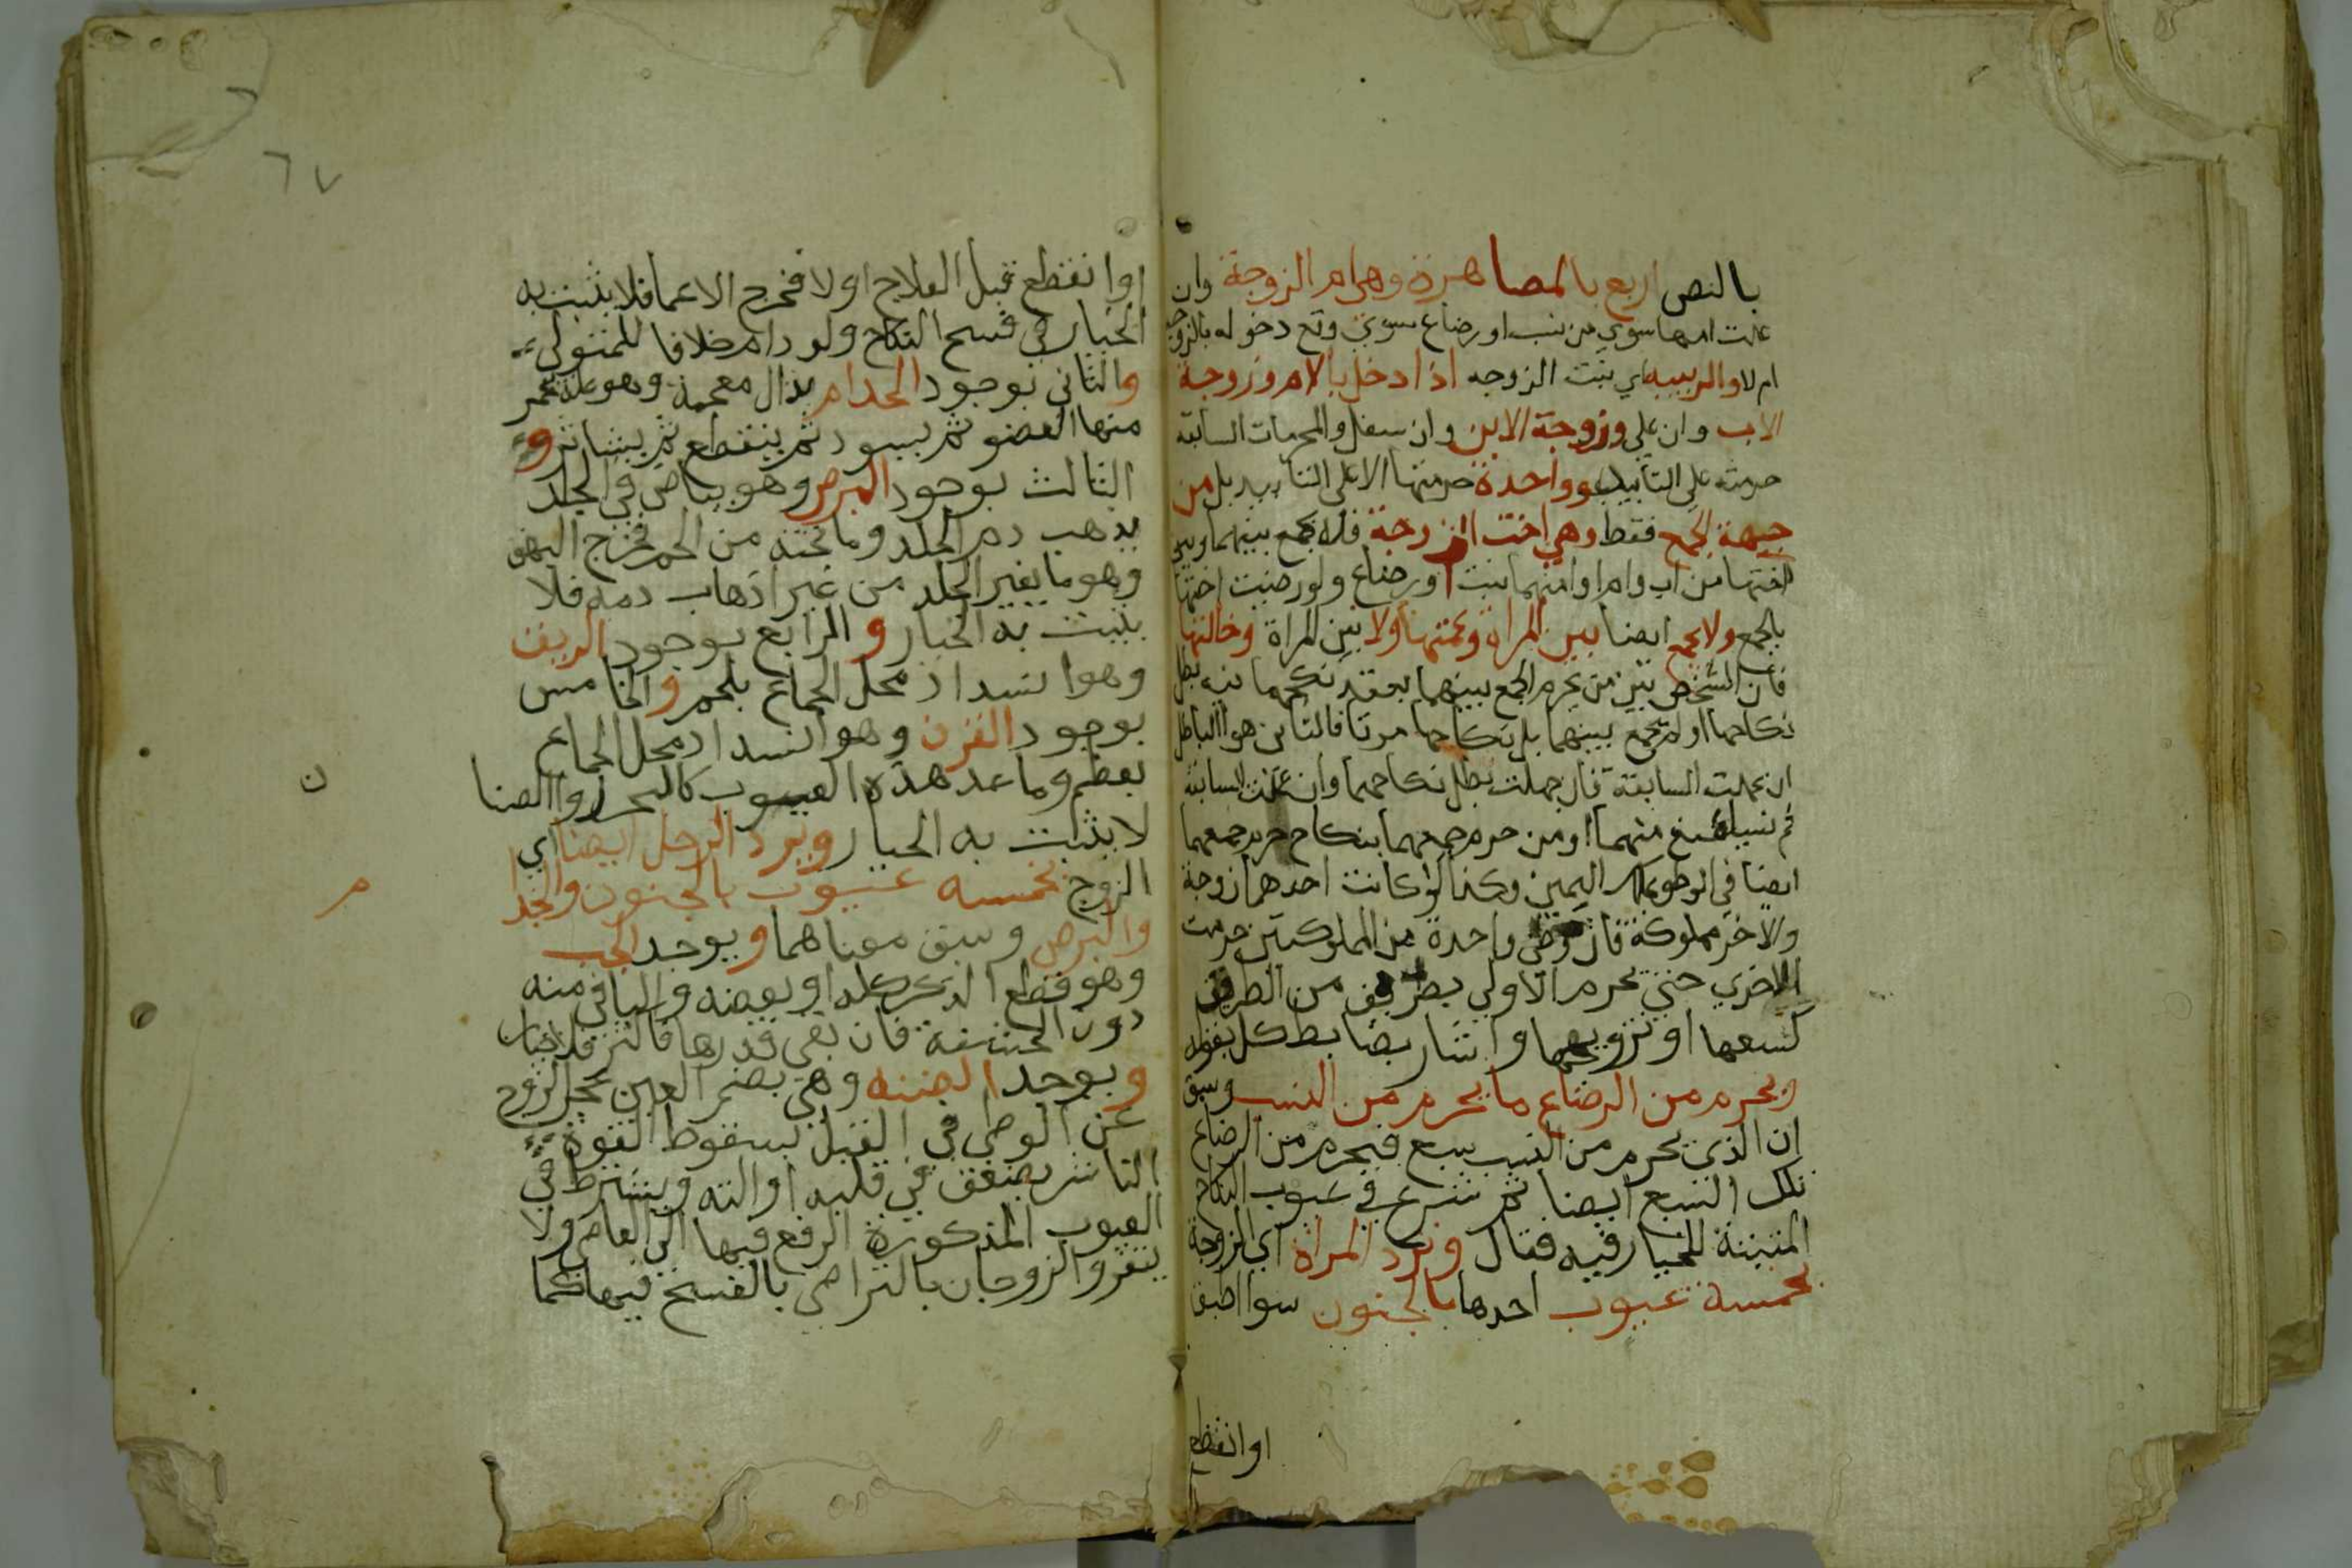 بالنص اربع بالمصاهرة وهي ام الزوجة وان
علت امها سوي من نسب او رضاع سوي وقع دخوله بالزوجه
ام لا والربيبه اي بنت الزوجه اذا دخل بالام وزوجة
الاب وان علي وزوجة الابن وان سفل والمحرمات السابقة
حرمته علي التأبيد وواحدة حرمتها لا علي التأبيد بل من
جيهة الجمع فقط وهي اخت الزوجة فلا يجمع بينهما وبين
اختها من اب وام او امنهما بنت او رضاع ولو رضيت اختها
بالجمع ولا يجمع ايضا بين المراة وعمتها ولا بين المراة وخالتها
فان الشخص بين من يحرم الجمع بينهما بعقد نكحهما فيه بطل
نكاحهما او لم يجمع بينهما بل نكاحهما مرتا فالثاني هو الباطل
ان علمت السابقة فان جهلت بطل نكاحهما وان علمت السابقة
ثم نسيت منع منهما ومن حرم جمعهما بنكاح حرم جمعهما
ايضا في الوطي بملك اليمين وكذا لو كانت احدهما زوجة
والاخر مملوكة فان وطي واحدة من المملوكتين حرمت
الاخري حتي يحرم الاولي بطريق من الطرق
كبيعها او تزويجها واشار بضابط كل بقوله
ويحرم من الرضاع ما يحرم من النسب وسبق
ان الذي يحرم من النسب سبع فيحرم من الرضاع
تلك السبع ايضا ثم شرع في عيوب النكاح
المثبتة للخيار فيه فقال وترد المراة اي الزوجة
بخمسة عيوب احدها بالجنون سوا اطبق
او انقطع
٦٧
او انقطع قبل العلاج او لا فخرج الاغما فلا يثبت به
الخيار في فسخ النكاح ولو دام خلافا للمتولي
والثاني بوجود الجدام بذال معجمة وهو علة يحمر
منها العضو ثم يسود ثم ينقطع ثم يتناثر و
الثالث بوجود البرص وهو بياض في الجلد
يذهب دم الجلد وما تحته من الحم فخرج البهق
وهو ما يغير الجلد من غير اذهاب دمه فلا
يثبت به الخيار و الرابع بوجود الريق
وهو انسداد محل الجماع بلحم والخامس
بوجود القرن وهو انسداد محل الجماع
بعظم وما عدا هذه العيوب كالبحر والصنا
لا يثبت به الخيار ويرد الرجل ايضا اي
ن
الزوج بخمسه عيوب بالجنون والجدا
م
والبرص وسبق معناهما و بوجد الجب
وهو قطع الذكر كله او بعضه والباقي منه
دون الحشفة فان بقي قدرها فاكثر فلا خيار
و بوجد العننه وهي بضم العين عجز الزوج
عن الوطي في القبل بسقوط القوة
الناشر بضعف في قلبه او الته ويشترط في
العيوب المذكورة الرفع فيها الي القاضي ولا
ينفرد الزوجان بالتراضي بالفسخ فيها كما